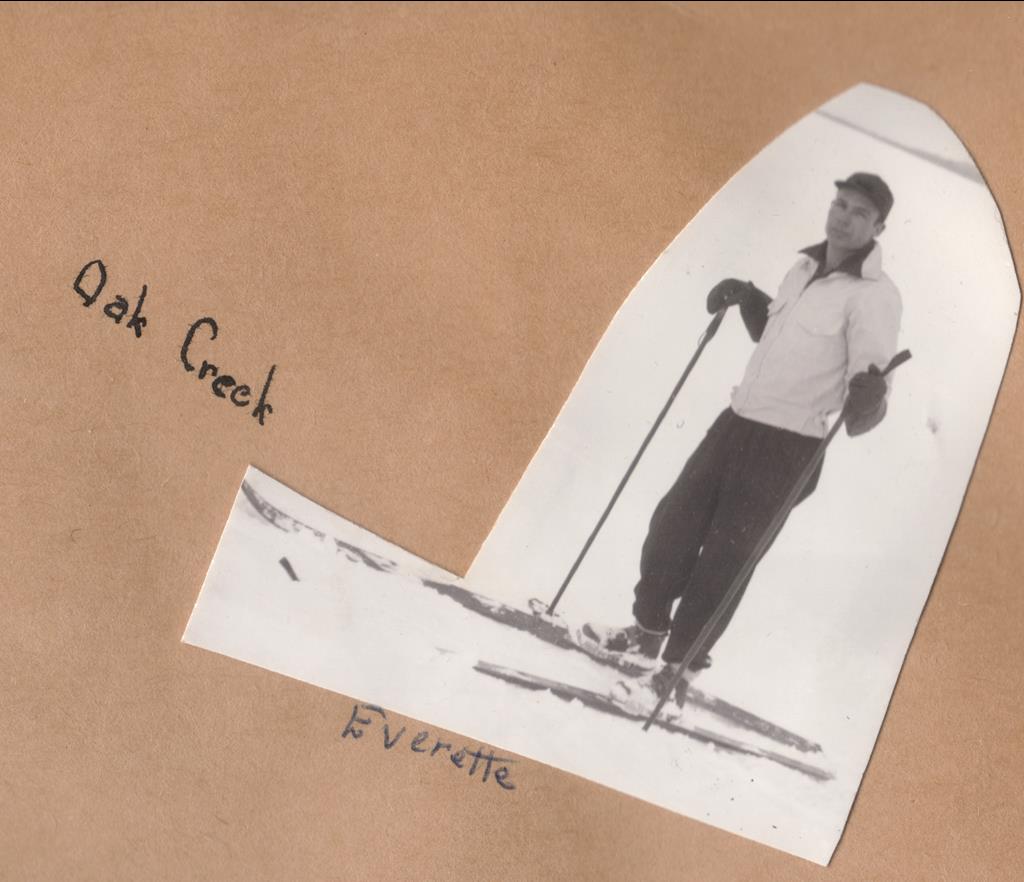 Oak Creek
Everette